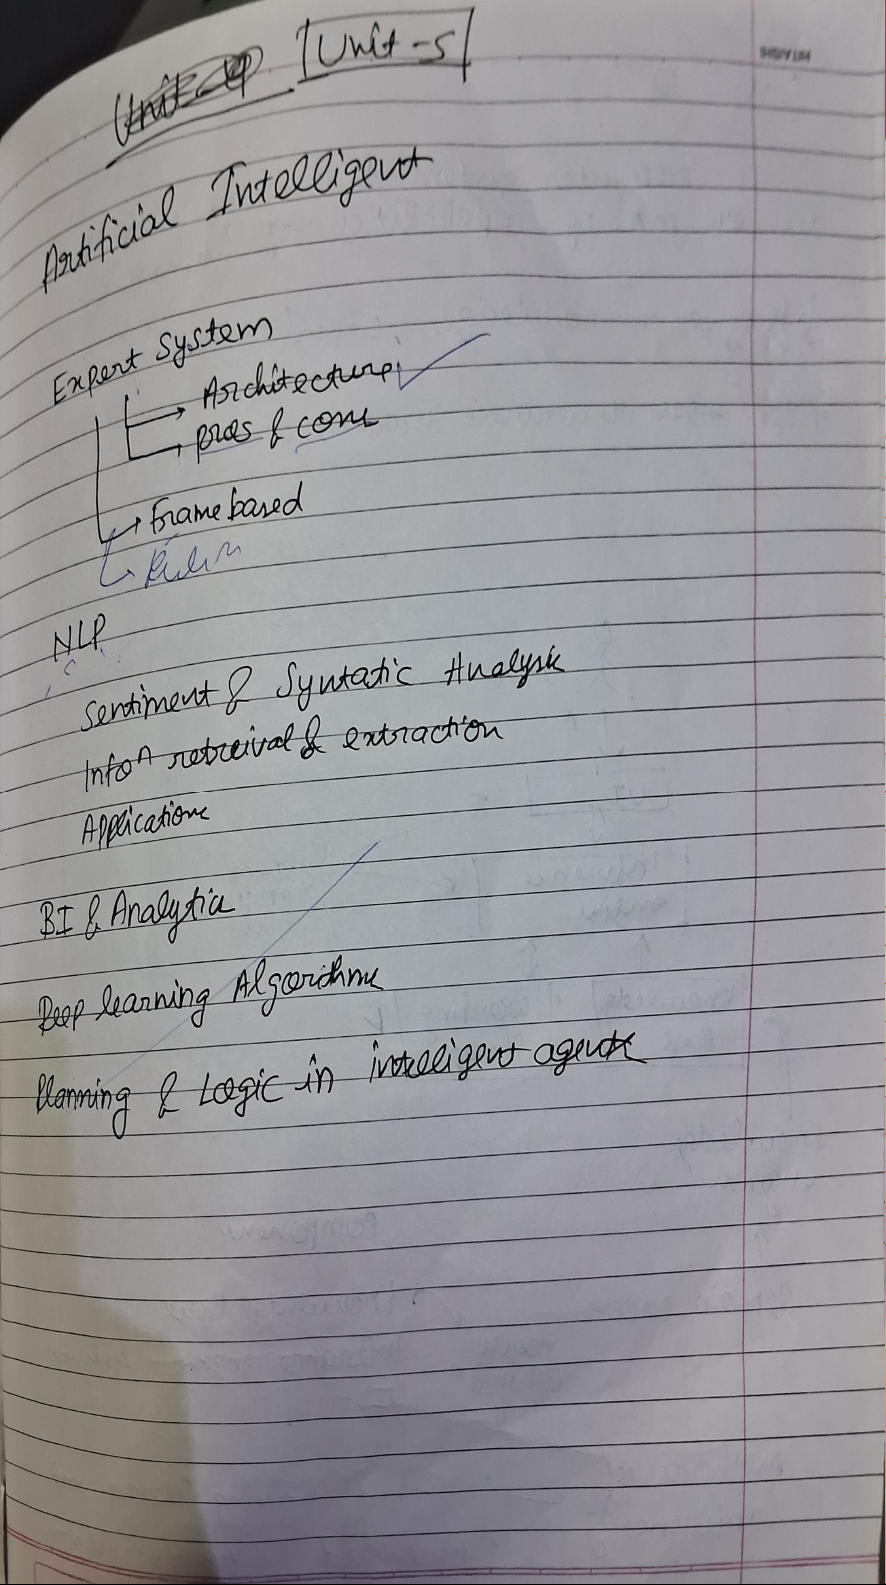 Unit-4 Unit-5
Artificial Intelligent
Expert System
Architecture
pros & cons
Frame based
NLP
Sentiment & Syntatic Analysis
Infon retreival & extraction
Applications
BI & Analytics
Deep learning Algorithms
Planning & Logic in intelligent agents